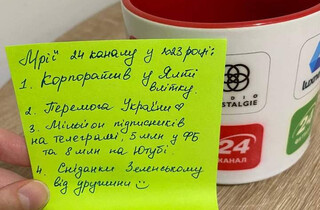 Мрії 24 каналу у 2023 році:
1. Корпоратив у Ялті
влітку.
2. Перемога України ♡
3. Мільйон підписників
на телеграмі, 5 млн у ФБ
та 8 млн на Ютубі.
4. Сніданки Зеленському
від урушини ☺
STALGIE
24
КАНАЛ
24